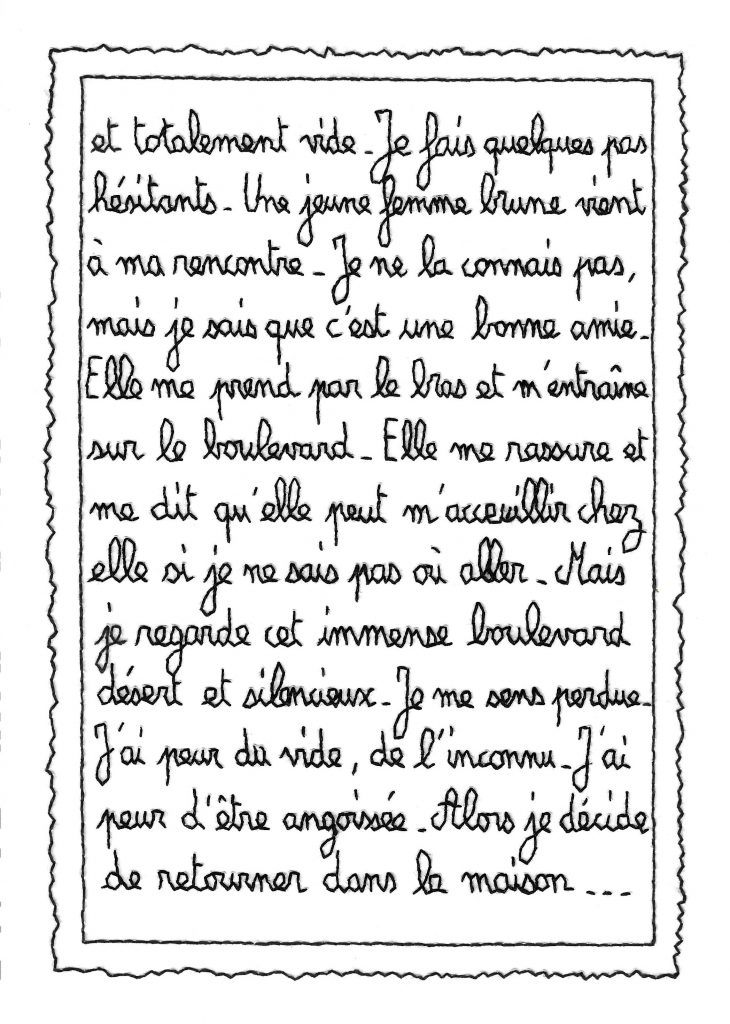 et totalement vide. Je fais quelques pas
hésitants. Une jeune femme brune vient
à ma rencontre. Je ne la connais pas,
mais je sais que c'est une bonne amie.
Elle me prend par le bras et m'entraîne
sur le boulevard. Elle me rassure et
me dit qu'elle peut m'acceuillir chez
elle si je ne sais pas où aller. Mais
je regarde cet immense boulevard
désert et silencieux. Je me sens perdue.
J'ai peur du vide, de l'inconnu. J'ai
peur d'être angoissée. Alors je décide
de retourner dans la maison ...